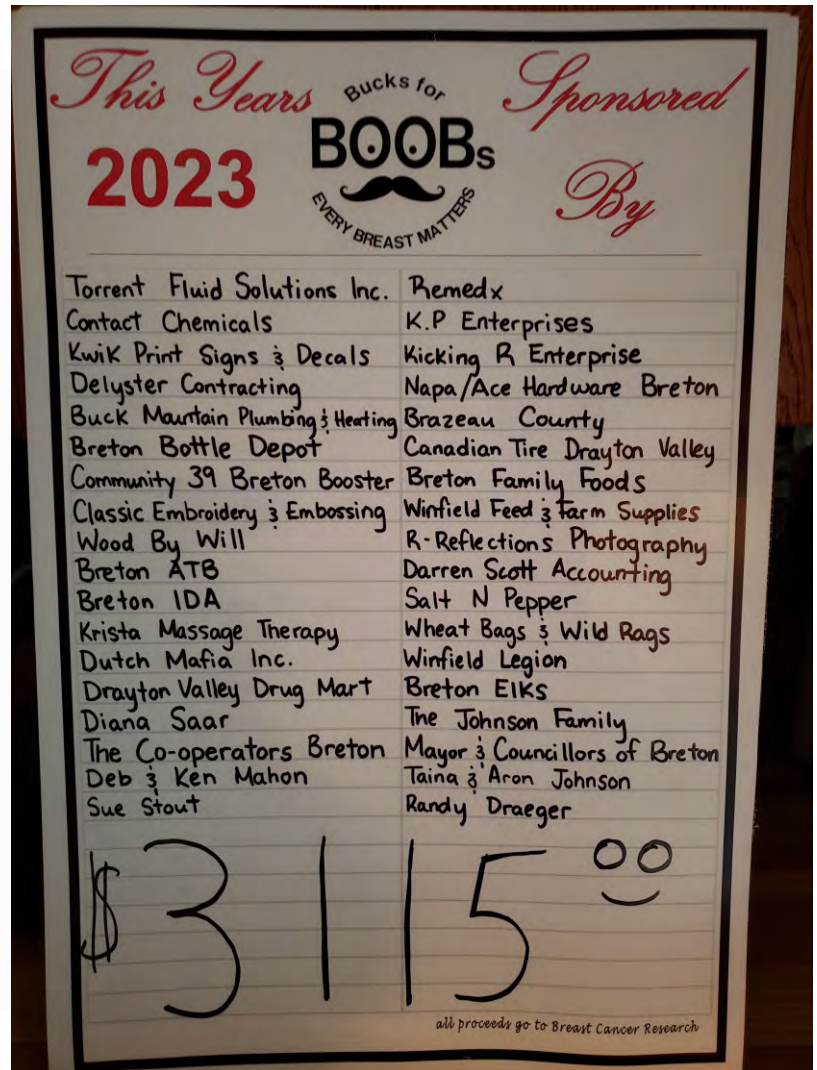 This Years
2023
Bucks for
BOOBs
EVERY BREAST MATTERS
Sponsored
By
Torrent Fluid Solutions Inc.
Contact Chemicals
Kwik Print Signs & Decals
Delyster Contracting
Buck Mountain Plumbing & Heating
Breton Bottle Depot
Community 39 Breton Booster
Classic Embroidery & Embossing
Wood By Will
Breton ATB
Breton IDA
Krista Massage Therapy
Dutch Mafia Inc.
Drayton Valley Drug Mart
Diana Saar
The Co-operators Breton
Deb & Ken Mahon
Sue Stout
Remedx
K.P Enterprises
Kicking R Enterprise
Napa/Ace Hardware Breton
Brazeau County
Canadian Tire Drayton Valley
Breton Family Foods
Winfield Feed & Farm Supplies
R-Reflections Photography
Darren Scott Accounting
Salt N Pepper
Wheat Bags & Wild Rags
Winfield Legion
Breton Elks
The Johnson Family
Mayor & Councillors of Breton
Taina & Aron Johnson
Randy Draeger
$3115
all proceeds go to Breast Cancer Research